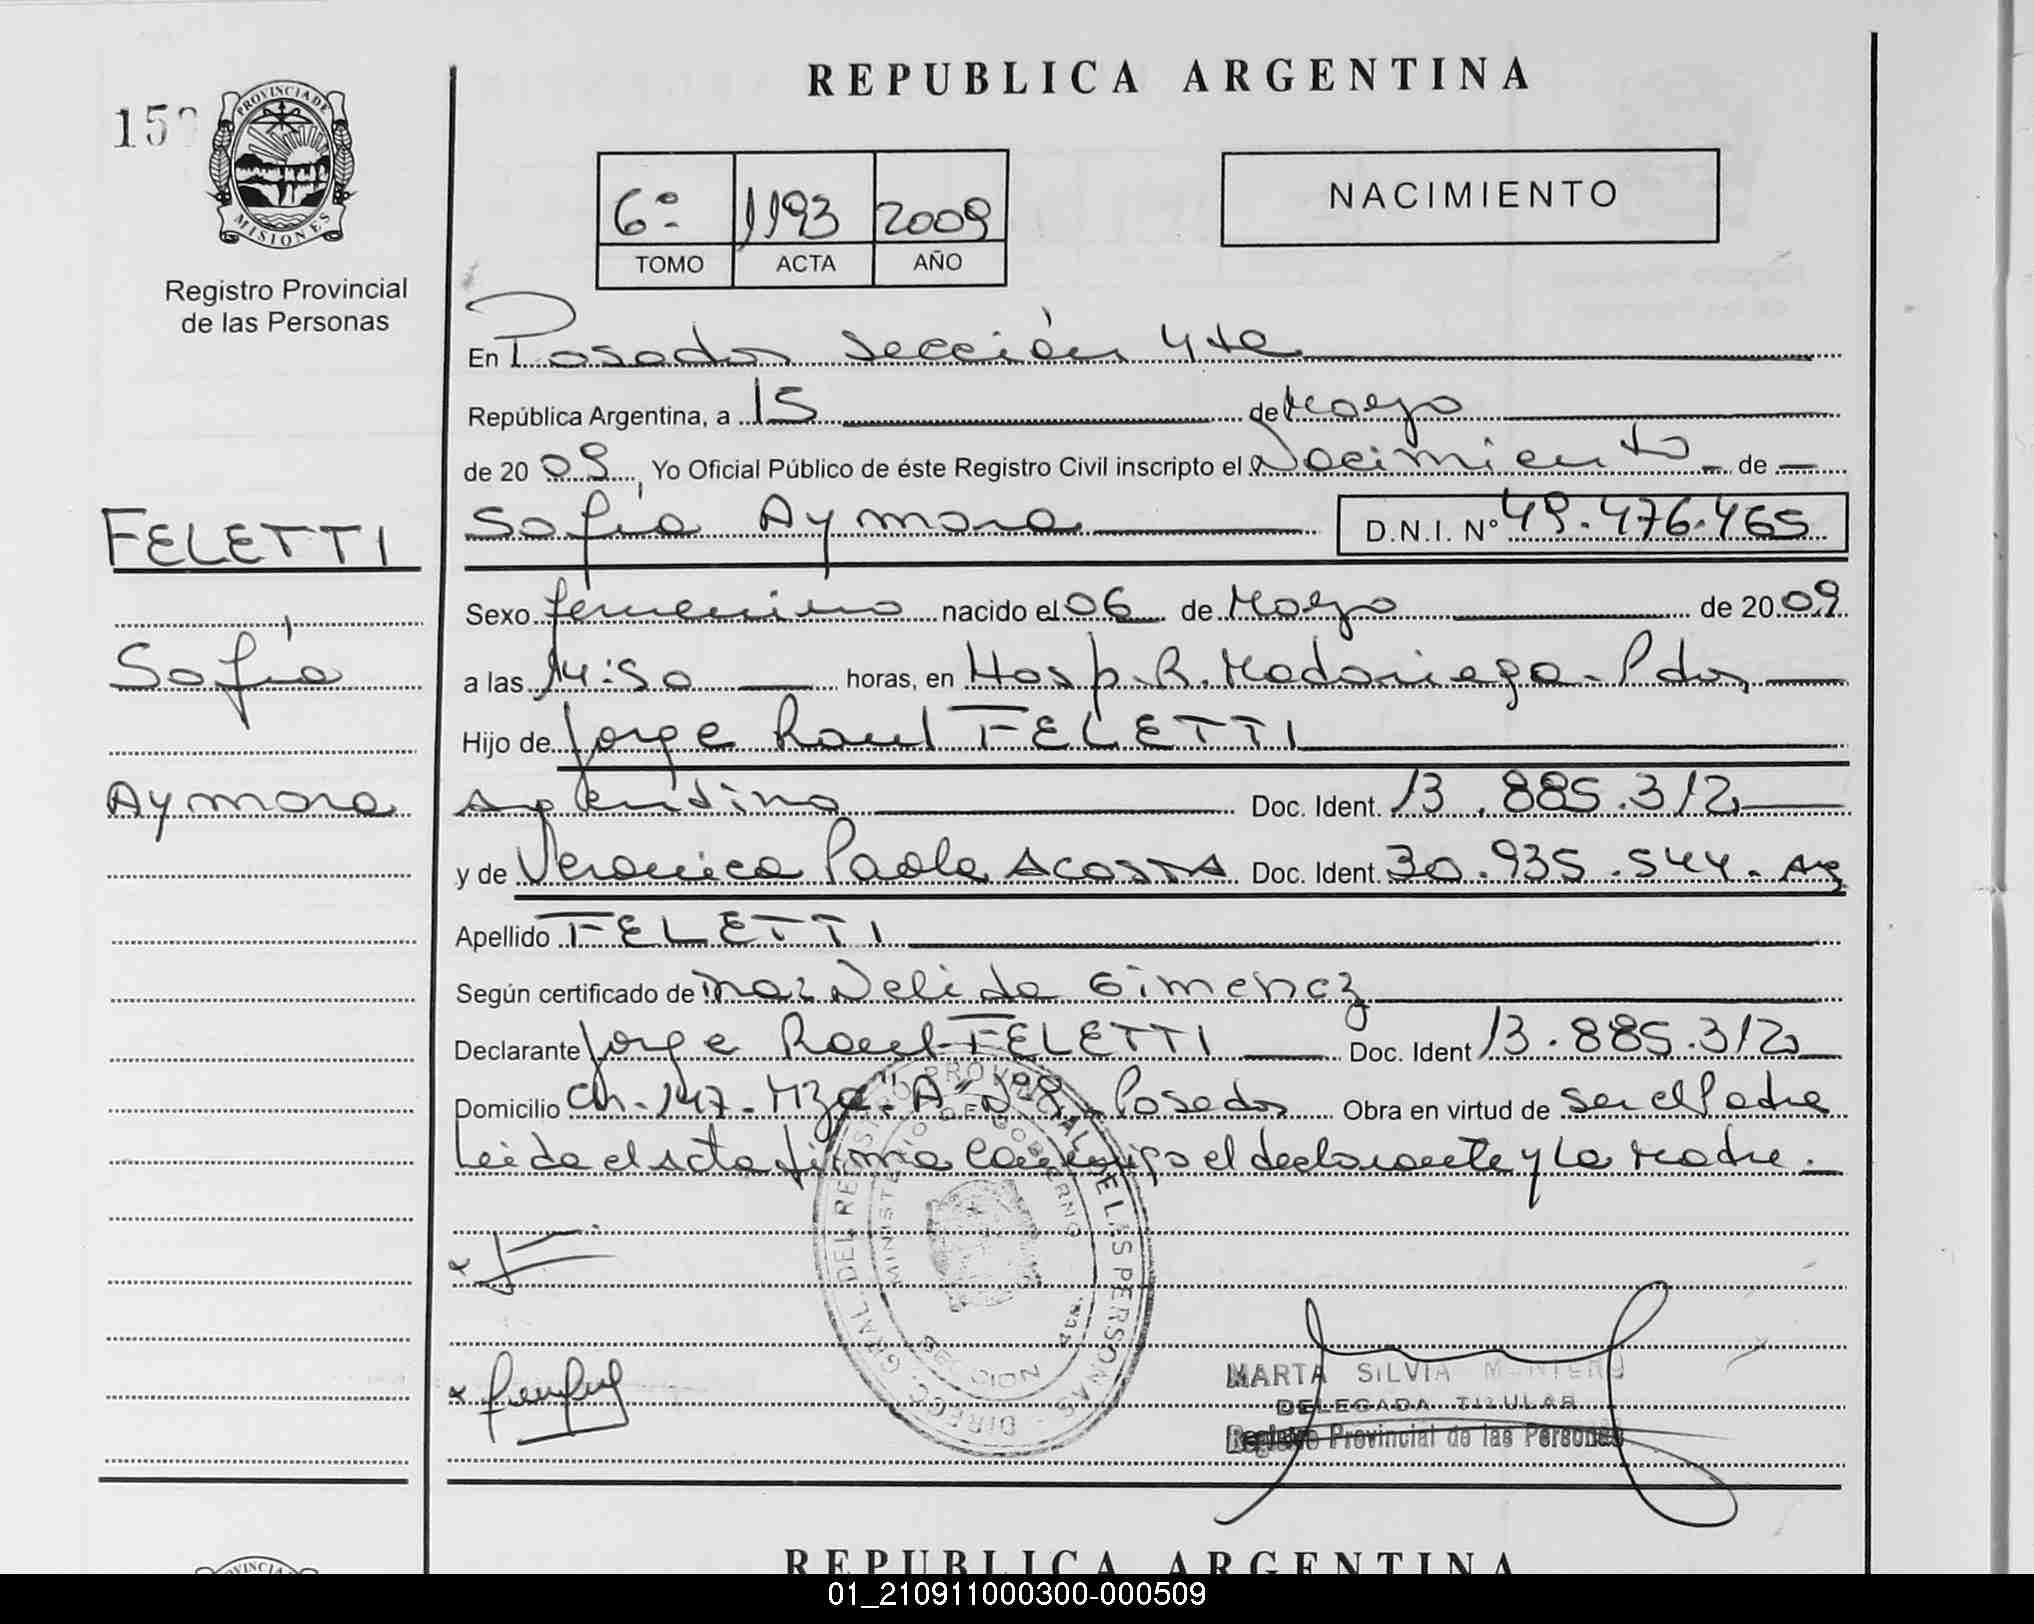 REPUBLICA ARGENTINA
15
PROVINCIA DE
MISIONES
Registro Provincial
de las Personas
6º 1193 2009
TOMO ACTA AÑO
NACIMIENTO
En Posadas Sección 4ta
República Argentina, a 15 de Mayo
de 20 09, Yo Oficial Público de éste Registro Civil inscripto el Nacimiento de
Sofía Aymara D.N.I. Nº 49.476.465
FELETTI
Sofía
Aymara
Sexo femenino nacido el 06 de Mayo de 20 09
a las 14:50 horas, en Hosp. R. Madariaga - Pdas
Hijo de Jorge Raul FELETTI
Argentino Doc. Ident. 13.885.312
y de Veronica Paola ACOSTA Doc. Ident. 30.935.544. Arg
Apellido FELETTI
Según certificado de Nelida Gimenez
Declarante Jorge Raul FELETTI Doc. Ident 13.885.312
Domicilio Ch. 147. Mza. "A" Nº 8. Posadas Obra en virtud de ser el Padre
Leida el Acta firma conmigo el declarante y la Madre.
DIREC. GRAL. DEL REGISTRO PROVINCIAL DE LAS PERSONAS
MINISTERIO DE GOBIERNO
MARTA SILVIA MONTERO
DELEGADA TITULAR
Registro Provincial de las Personas
REPUBLICA ARGENTINA
01_210911000300-000509